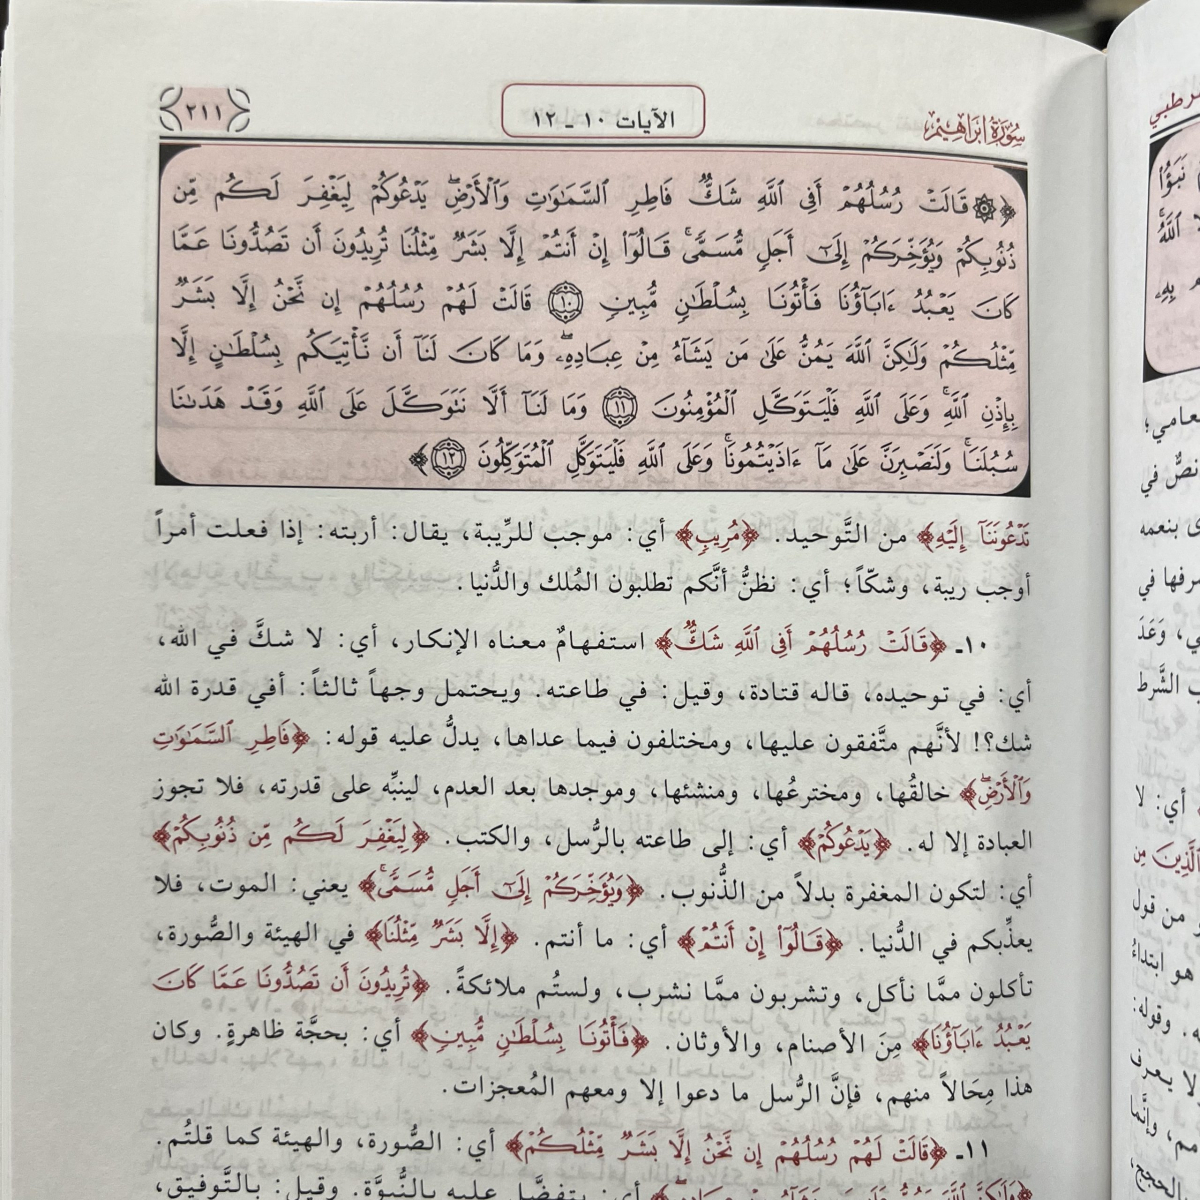 سُورَةُ إِبْرَاهِيم
الآيات ١٠ ـ ١٢
٢١١
﴿۞ قَالَتْ رُسُلُهُمْ أَفِي ٱللَّهِ شَكٌّ فَاطِرِ ٱلسَّمَٰوَٰتِ وَٱلْأَرْضِۖ يَدْعُوكُمْ لِيَغْفِرَ لَكُم مِّن
ذُنُوبِكُمْ وَيُؤَخِّرَكُمْ إِلَىٰٓ أَجَلٍ مُّسَمًّىۚ قَالُوٓا۟ إِنْ أَنتُمْ إِلَّا بَشَرٌ مِّثْلُنَا تُرِيدُونَ أَن تَصُدُّونَا عَمَّا
كَانَ يَعْبُدُ ءَابَآؤُنَا فَأْتُونَا بِسُلْطَٰنٍ مُّبِينٍ ١٠ قَالَتْ لَهُمْ رُسُلُهُمْ إِن نَّحْنُ إِلَّا بَشَرٌ
مِّثْلُكُمْ وَلَٰكِنَّ ٱللَّهَ يَمُنُّ عَلَىٰ مَن يَشَآءُ مِنْ عِبَادِهِۦۖ وَمَا كَانَ لَنَآ أَن نَّأْتِيَكُم بِسُلْطَٰنٍ إِلَّا
بِإِذْنِ ٱللَّهِۚ وَعَلَى ٱللَّهِ فَلْيَتَوَكَّلِ ٱلْمُؤْمِنُونَ ١١ وَمَا لَنَآ أَلَّا نَتَوَكَّلَ عَلَى ٱللَّهِ وَقَدْ هَدَىٰنَا
سُبُلَنَاۚ وَلَنَصْبِرَنَّ عَلَىٰ مَآ ءَاذَيْتُمُونَاۚ وَعَلَى ٱللَّهِ فَلْيَتَوَكَّلِ ٱلْمُتَوَكِّلُونَ ١٢﴾
تَدْعُونَنَآ إِلَيْهِ﴾ من التَّوحيد. ﴿مُرِيبٍ﴾ أي: موجب للرِّيبة، يقال: أربته: إذا فعلت أمراً
أوجب ريبة، وشكّاً؛ أي: نظنُّ أنَّكم تطلبون المُلك والدُّنيا.
١٠ـ ﴿قَالَتْ رُسُلُهُمْ أَفِي ٱللَّهِ شَكٌّ﴾ استفهامٌ معناه الإنكار، أي: لا شكَّ في الله،
أي: في توحيده، قاله قتادة، وقيل: في طاعته. ويحتمل وجهاً ثالثاً: أفي قدرة الله
شك؟! لأنَّهم متَّفقون عليها، ومختلفون فيما عداها، يدلُّ عليه قوله: ﴿فَاطِرِ ٱلسَّمَٰوَٰتِ
وَٱلْأَرْضِۖ﴾ خالقُها، ومخترعُها، ومنشئها، وموجدها بعد العدم، لينبِّه على قدرته، فلا تجوز
العبادة إلا له. ﴿يَدْعُوكُمْ﴾ أي: إلى طاعته بالرُّسل، والكتب. ﴿لِيَغْفِرَ لَكُم مِّن ذُنُوبِكُمْ﴾
أي: لتكون المغفرة بدلاً من الذُّنوب. ﴿وَيُؤَخِّرَكُمْ إِلَىٰٓ أَجَلٍ مُّسَمًّىۚ﴾ يعني: الموت، فلا
يعذِّبكم في الدُّنيا. ﴿قَالُوٓا۟ إِنْ أَنتُمْ﴾ أي: ما أنتم. ﴿إِلَّا بَشَرٌ مِّثْلُنَا﴾ في الهيئة والصُّورة،
تأكلون ممَّا نأكل، وتشربون ممَّا نشرب، ولستُم ملائكةً. ﴿تُرِيدُونَ أَن تَصُدُّونَا عَمَّا كَانَ
يَعْبُدُ ءَابَآؤُنَا﴾ مِنَ الأصنام، والأوثان. ﴿فَأْتُونَا بِسُلْطَٰنٍ مُّبِينٍ﴾ أي: بحجَّة ظاهرةٍ. وكان
هذا مِحَالاً منهم، فإنَّ الرُّسل ما دعوا إلا ومعهم المُعجزات.
١١ـ ﴿قَالَتْ لَهُمْ رُسُلُهُمْ إِن نَّحْنُ إِلَّا بَشَرٌ مِّثْلُكُمْ﴾ أي: الصُّورة، والهيئة كما قلتُم.
﴿وَلَٰكِنَّ ٱللَّهَ يَمُنُّ عَلَىٰ مَن يَشَآءُ مِنْ عِبَادِهِۦۖ﴾ أي: يتفضَّل عليه بالنُّبوَّة. وقيل: بالتَّوفيق،